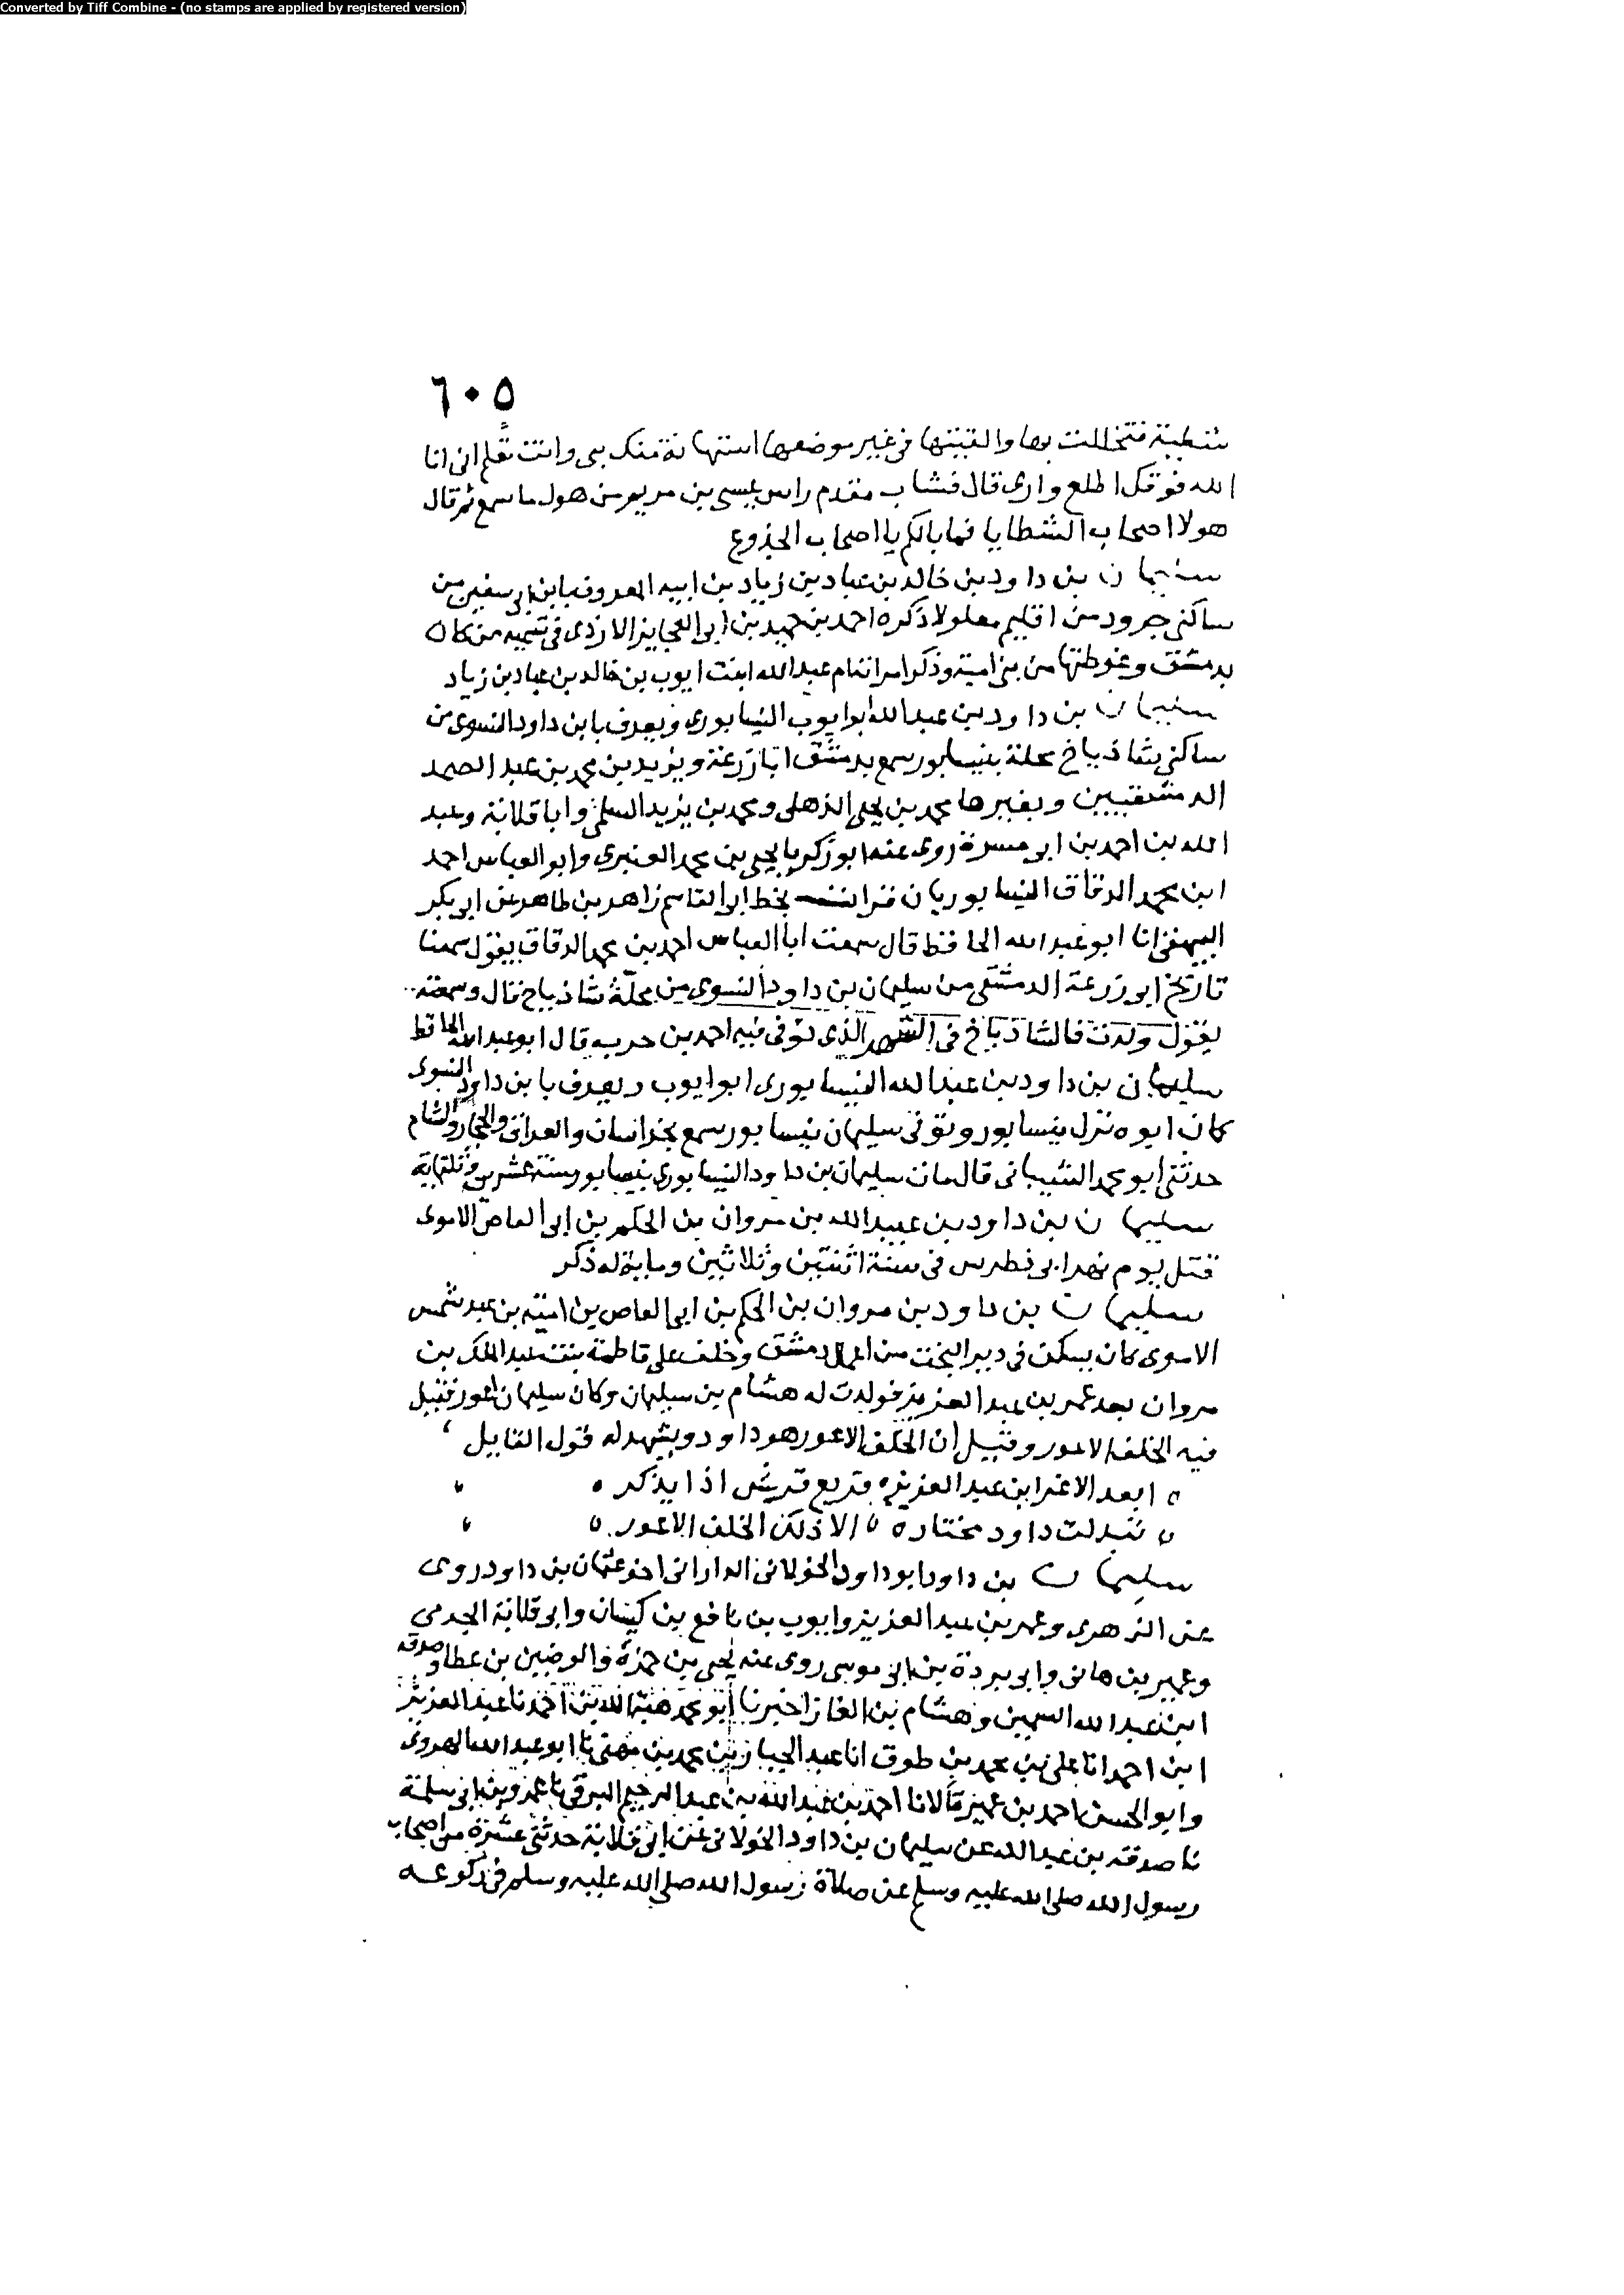 Converted by Tiff Combine - (no stamps are applied by registered version)
٦٠٥
شظية فتخللت بها والقيتها في غير موضعها استهانة منك بي وانت تعلم اني انا
الله فوقك اطلع وارى قال فشاب مقدم راس عيسى بن مريم من هول ما سمع ثم قال
هولا اصحاب الشظايا فما بالكم يا اصحاب الجذوع
سليمان بن داود بن خالد بن عباد بن زياد بن ابيه المعروف بابن ابي سفين من
ساكني جرود من اقليم معلولا ذكره احمد بن حميد بن ابي العجايز الازدي في تسميه من كان
بدمشق وغوطتها من بني امية وذكر امراته ام عبد الله ابنت ايوب بن خالد بن عباد بن زياد
سليمان بن داود بن عبد الله ابو ايوب النيسابوري ويعرف بابن داود النسوي من
ساكني شاذياخ محلة بنيسابور سمع بدمشق ابا زرعة ويزيد بن محمد بن عبد الصمد
الدمشقيين وبغيرها محمد بن يحيى الذهلي ومحمد بن يزيد السلمي وابا قلابة وعبد
الله بن احمد بن ابي مسرة روى عنه ابو زكريا يحيى بن محمد العنبري وابو العباس احمد
ابن محمد الدقاق النيسابوريان قرات بخط ابي القاسم زاهر بن طاهر عن ابي بكر
البيهقي انا ابو عبد الله الحافظ قال سمعت ابا العباس احمد بن محمد الدقاق يقول سمعنا
تاريخ ابي زرعة الدمشقي من سليمان بن داود النسوي من محلة شاذياخ قال وسمعته
يقول ولدت فالشاذياخ في الشهر الذي توفي فيه احمد بن حرب قال ابو عبد الله الحافظ
سليمان بن داود بن عبد الله النيسابوري ابو ايوب ويعرف بابن داود النسوي
كان ابوه نزل بنيسابور وتوفي سليمان بنيسابور سمع بخراسان والعراق والحجاز والشام
حدثني ابو محمد الشيباني قال مات سليمان بن داود النيسابوري بنيسابور سنة عشرين وثلثماية
سليمان بن داود بن عبيد الله بن مروان بن الحكم بن ابي العاص الاموي
قتل يوم نهر ابي فطرس في سنة اثنتين وثلاثين وماية له ذكر
سليمان بن داود بن مروان بن الحكم بن ابي العاص بن امية بن عبد شمس
الاموي كان يسكن في دير البخت من اعمال دمشق وخلف على فاطمة بنت عبد الملك بن
مروان بعد عمر بن عبد العزيز فولدت له هشام بن سليمان وكان سليمان اعور فقيل
فيه الخلف الاعور وقيل ان الخلف الاعور هو داود ويشهد له قول القايل
ابعد الاغر ابن عبد العزيز قريع قريش اذا يذكر
تبدلت داود مختارة الا ذلك الخلف الاعور
سليمان بن داود ابو داود الخولاني الداراني اخو عثمان بن داود روى
عن الزهري وعمر بن عبد العزيز وايوب بن نافع بن كيسان وابي قلابة الجرمي
وعمير بن هاني وابي بردة بن ابي موسى روى عنه يحيى بن حمزة والوضين بن عطا وصدقة
ابن عبد الله السمين وهشام بن الغاز اخبرنا ابو محمد هبة الله بن احمد نا عبد العزيز
ابن احمد انا علي بن محمد بن طوق انا عبد الجبار بن محمد بن مهنى نا ابو عبد الله الهروي
وابو الحسن احمد بن عمير قالا نا احمد بن عبد الله بن عبد الرحيم البرقي نا عمرو بن ابي سلمة
نا صدقة بن عبد الله عن سليمان بن داود الخولاني عن ابي قلابة حدثني عشرة من اصحاب
رسول الله صلى الله عليه وسلم عن صلاة رسول الله صلى الله عليه وسلم في ركوعه